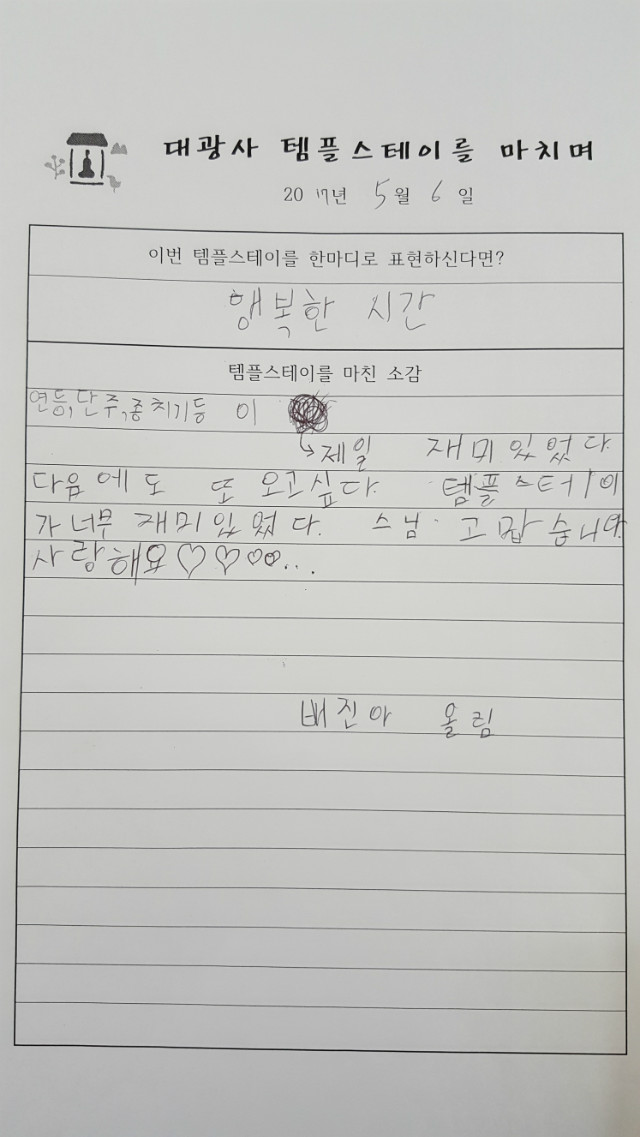 대광사 템플스테이를 마치며
2017년 5월 6일
이번 템플스테이를 한마디로 표현하신다면?
행복한 시간
템플스테이를 마친 소감
연등,단주,종치기등 이
제일 재미있었다
다음에도 또 오고싶다. 템플스터이
가 너무 재미있었다. 스님. 고맙습니다
사랑해요♡♡♡♡♡...
배진아 올림